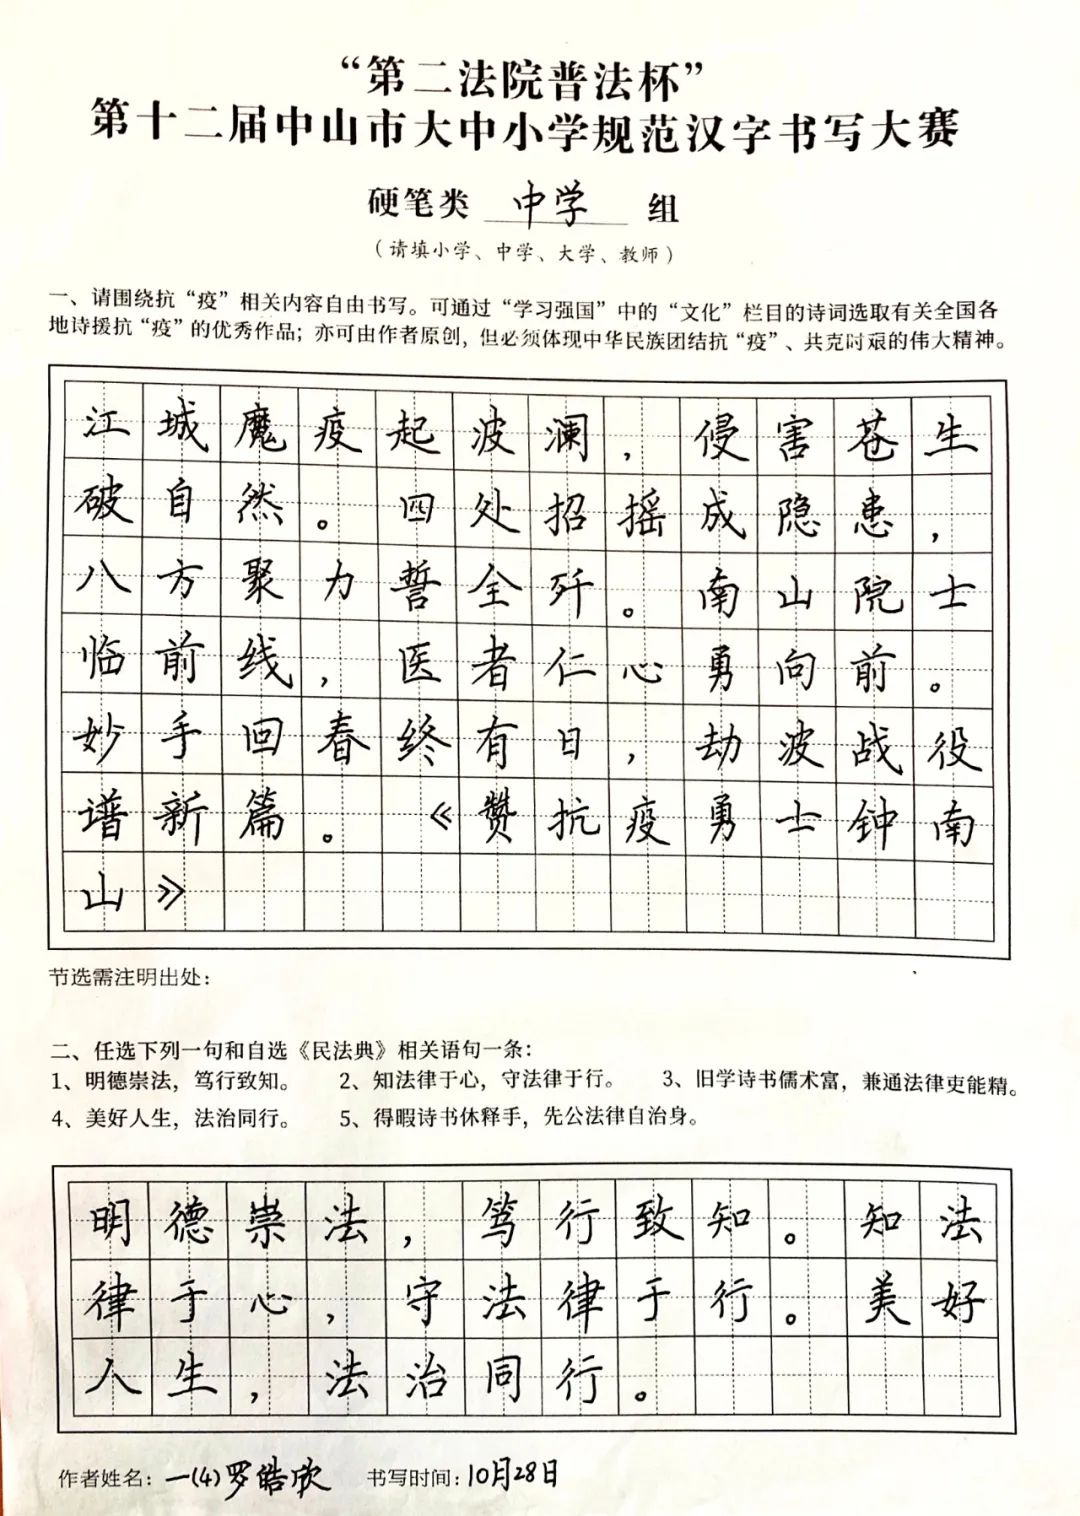 “第二法院普法杯”
第十二届中山市大中小学规范汉字书写大赛
硬笔类 中学 组
（请填小学、中学、大学、教师）
一、请围绕抗“疫”相关内容自由书写。可通过“学习强国”中的“文化”栏目的诗词选取有关全国各
地诗援抗“疫”的优秀作品；亦可由作者原创，但必须体现中华民族团结抗“疫”、共克时艰的伟大精神。
江城魔疫起波澜，侵害苍生
破自然。四处招摇成隐患，
八方聚力誓全歼。南山院士
临前线，医者仁心勇向前。
妙手回春终有日，劫波战役
谱新篇。《赞抗疫勇士钟南
山》
节选需注明出处：
二、任选下列一句和自选《民法典》相关语句一条：
1、明德崇法，笃行致知。 2、知法律于心，守法律于行。 3、旧学诗书儒术富，兼通法律吏能精。
4、美好人生，法治同行。 5、得暇诗书休释手，先公法律自治身。
明德崇法，笃行致知。知法
律于心，守法律于行。美好
人生，法治同行。
作者姓名：一(4)罗皓欣 书写时间：10月28日